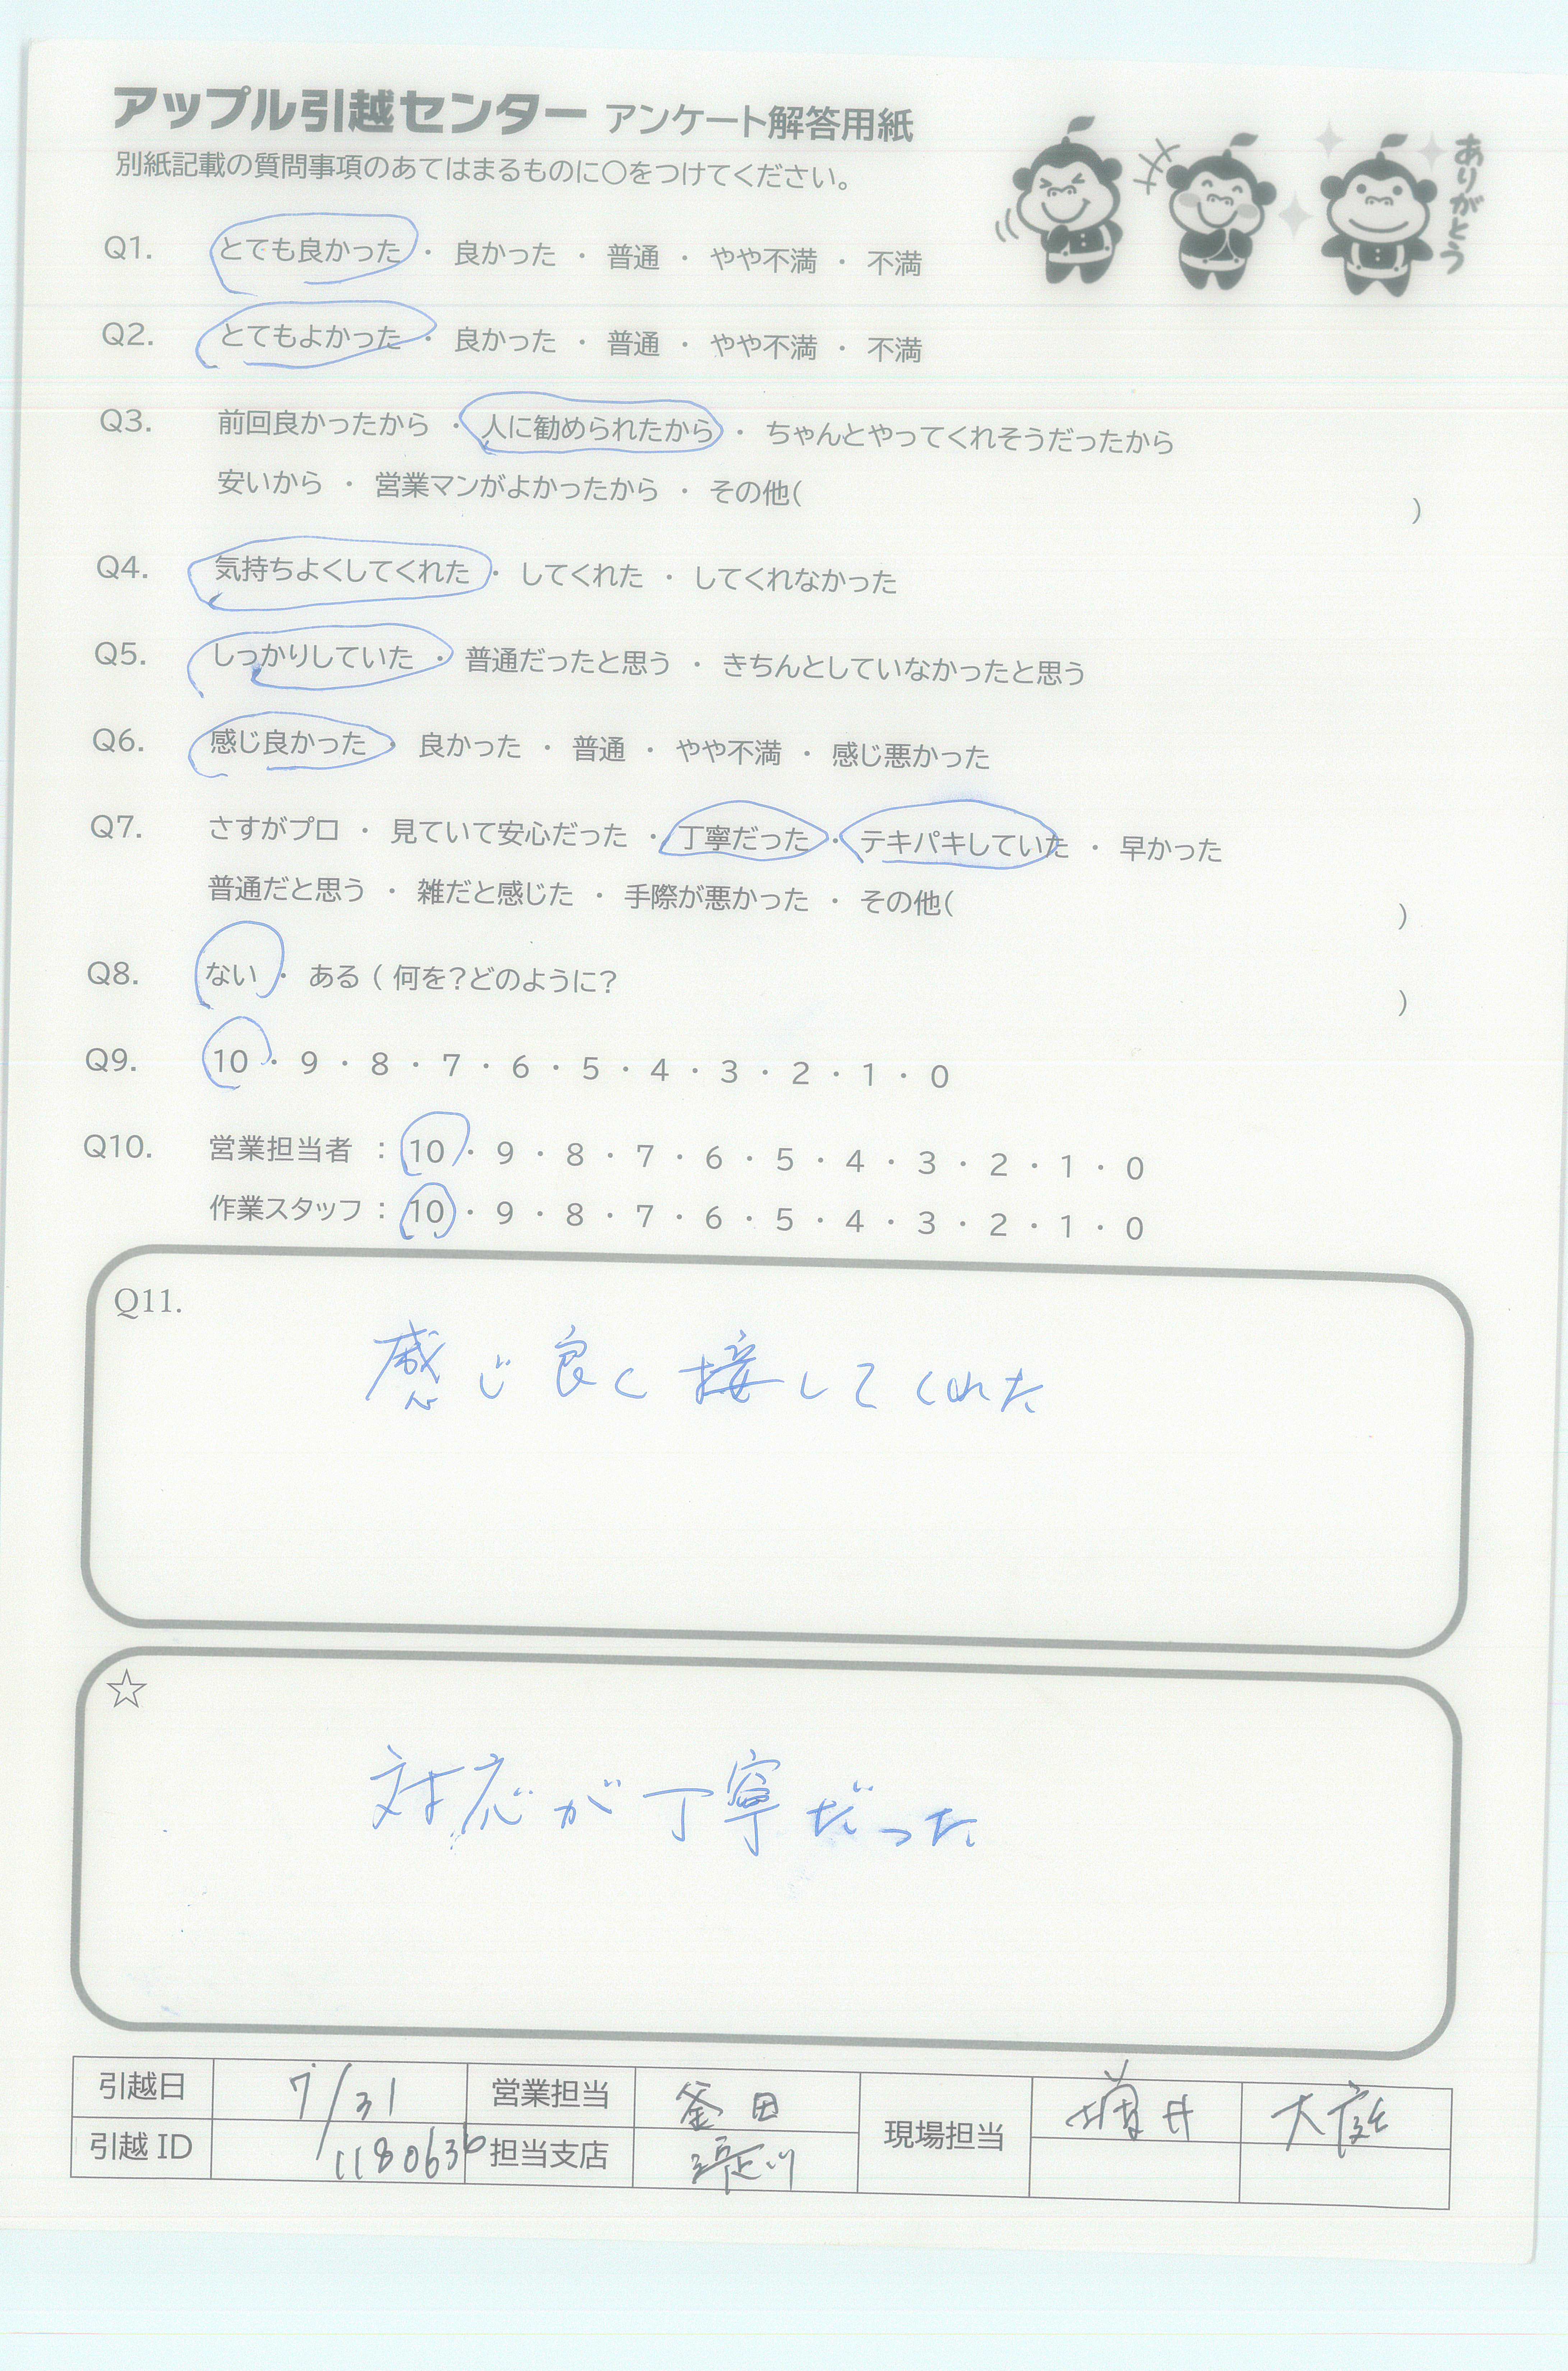 アップル引越センター アンケート解答用紙
別紙記載の質問事項のあてはまるものに〇をつけてください。
ありがとう
Q1. とても良かった ・ 良かった ・ 普通 ・ やや不満 ・ 不満
Q2. とてもよかった ・ 良かった ・ 普通 ・ やや不満 ・ 不満
Q3. 前回良かったから ・ 人に勧められたから ・ ちゃんとやってくれそうだったから
安いから ・ 営業マンがよかったから ・ その他( )
Q4. 気持ちよくしてくれた ・ してくれた ・ してくれなかった
Q5. しっかりしていた ・ 普通だったと思う ・ きちんとしていなかったと思う
Q6. 感じ良かった ・ 良かった ・ 普通 ・ やや不満 ・ 感じ悪かった
Q7. さすがプロ ・ 見ていて安心だった ・ 丁寧だった ・ テキパキしていた ・ 早かった
普通だと思う ・ 雑だと感じた ・ 手際が悪かった ・ その他( )
Q8. ない ・ ある ( 何を?どのように? )
Q9. 10 ・ 9 ・ 8 ・ 7 ・ 6 ・ 5 ・ 4 ・ 3 ・ 2 ・ 1 ・ 0
Q10. 営業担当者 : 10 ・ 9 ・ 8 ・ 7 ・ 6 ・ 5 ・ 4 ・ 3 ・ 2 ・ 1 ・ 0
作業スタッフ : 10 ・ 9 ・ 8 ・ 7 ・ 6 ・ 5 ・ 4 ・ 3 ・ 2 ・ 1 ・ 0
Q11.
感じ良く接してくれた
☆
対応が丁寧だった
引越日 7/31 営業担当 釜田 現場担当 大庭
引越 ID 1180636 担当支店